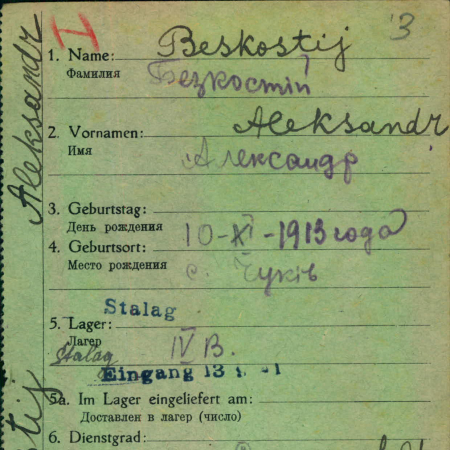 3
I
1. Name: Beskostij
Фамилия Безкостій
2. Vornamen: Aleksandr
Имя Александр
3. Geburtstag:
День рождения 10-XI-1913 года
4. Geburtsort:
Место рождения с. Чуків
Stalag
5. Lager:
Лагерь IV B.
Stalag
Eingang 13
5a. Im Lager eingeliefert am:
Доставлен в лагерь (число)
6. Dienstgrad:
Aleksandr